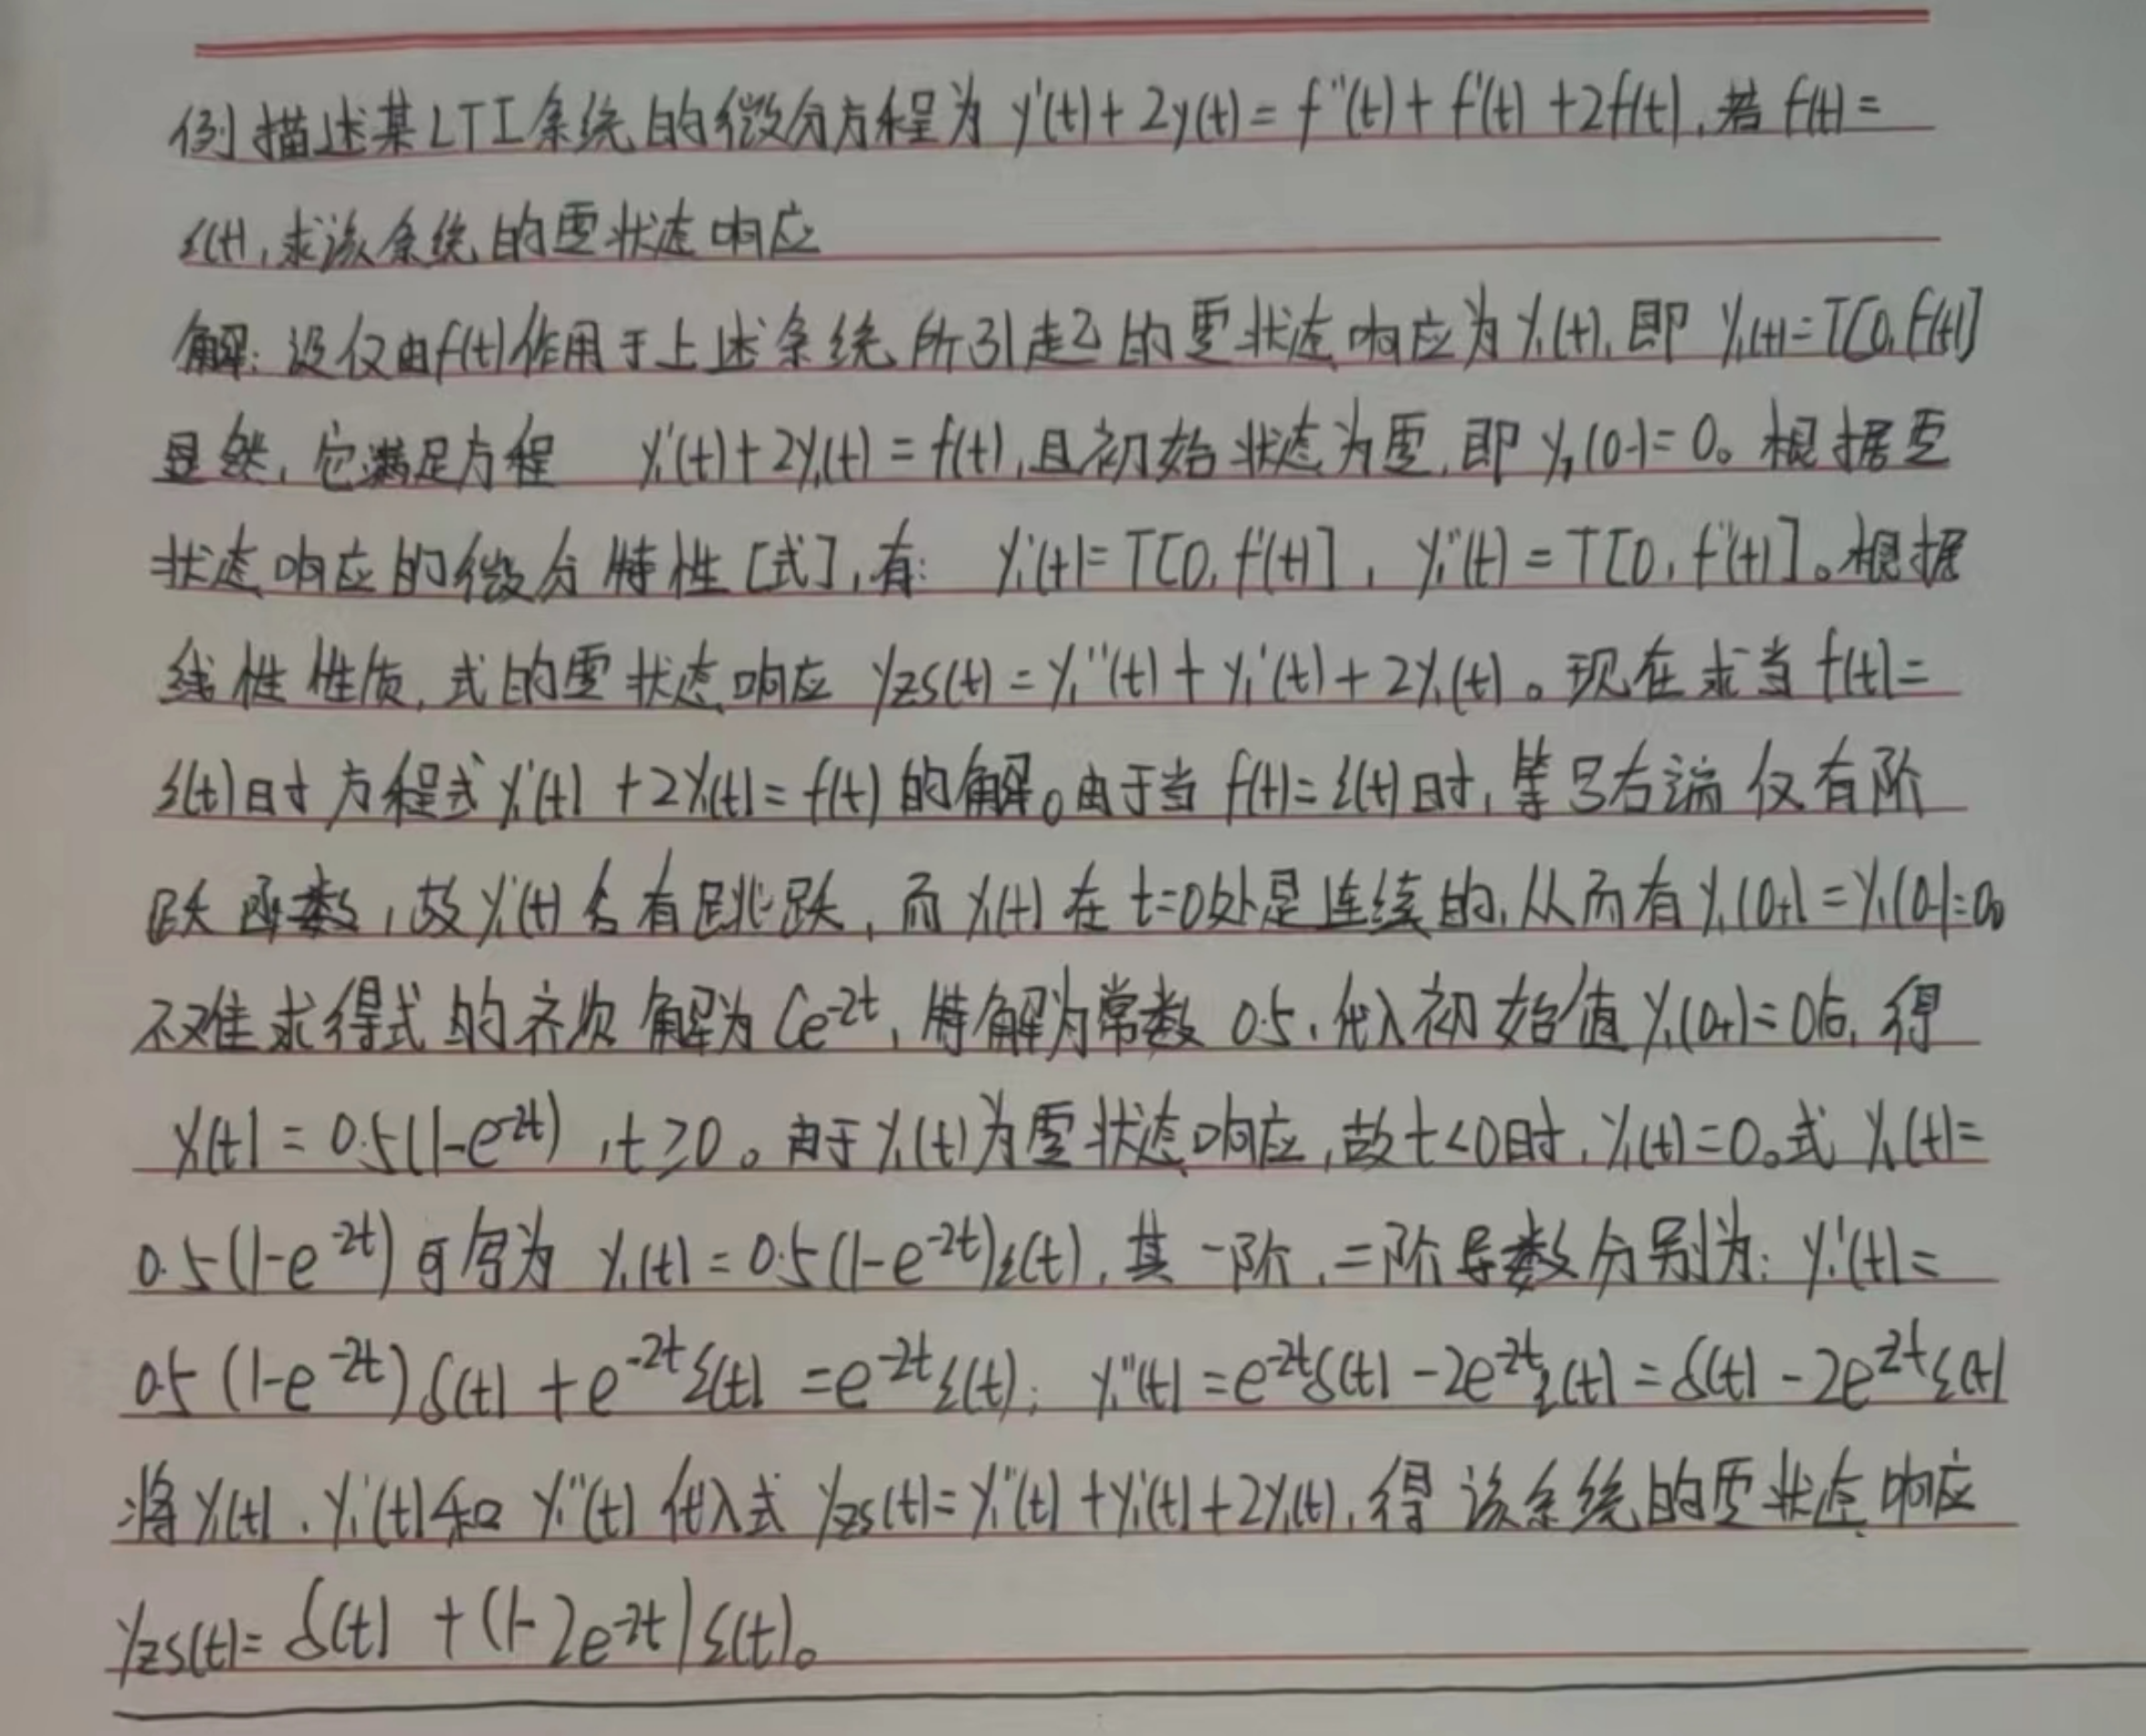 例 描述某LTI系统的微分方程为 y'(t)+2y(t)=f''(t)+f'(t)+2f(t),若f(t)=
ε(t),求该系统的零状态响应
解:设仅由f(t)作用于上述系统所引起的零状态响应为y₁(t),即 y₁(t)=T[0,f(t)]
显然,它满足方程 y₁'(t)+2y₁(t)=f(t),且初始状态为零,即y₁(0-)=0。根据零
状态响应的微分特性[式],有: y₁'(t)=T[0,f'(t)], y₁''(t)=T[0,f''(t)]。根据
线性性质,式的零状态响应 yzs(t)=y₁''(t)+y₁'(t)+2y₁(t)。现在求当f(t)=
ε(t)时方程式y₁'(t)+2y₁(t)=f(t)的解。由于当f(t)=ε(t)时,等号右端仅有阶
跃函数,故y₁'(t)含有跳跃,而y₁(t)在t=0处是连续的,从而有y₁(0+)=y₁(0-)=0。
不难求得式的齐次解为Ce⁻²ᵗ,特解为常数0.5.代入初始值y₁(0+)=0后,得
y₁(t)=0.5(1-e⁻²ᵗ),t≥0。由于y₁(t)为零状态响应,故t<0时,y₁(t)=0。式y₁(t)=
0.5(1-e⁻²ᵗ)可写为 y₁(t)=0.5(1-e⁻²ᵗ)ε(t),其一阶,二阶导数分别为:y₁'(t)=
0.5(1-e⁻²ᵗ)δ(t)+e⁻²ᵗε(t)=e⁻²ᵗε(t); y₁''(t)=e⁻²ᵗδ(t)-2e⁻²ᵗε(t)=δ(t)-2e²ᵗε(t)
将y₁(t).y₁'(t)和y₁''(t)代入式yzs(t)=y₁''(t)+y₁'(t)+2y₁(t),得该系统的零状态响应
yzs(t)=δ(t)+(1-2e⁻²ᵗ)ε(t)。